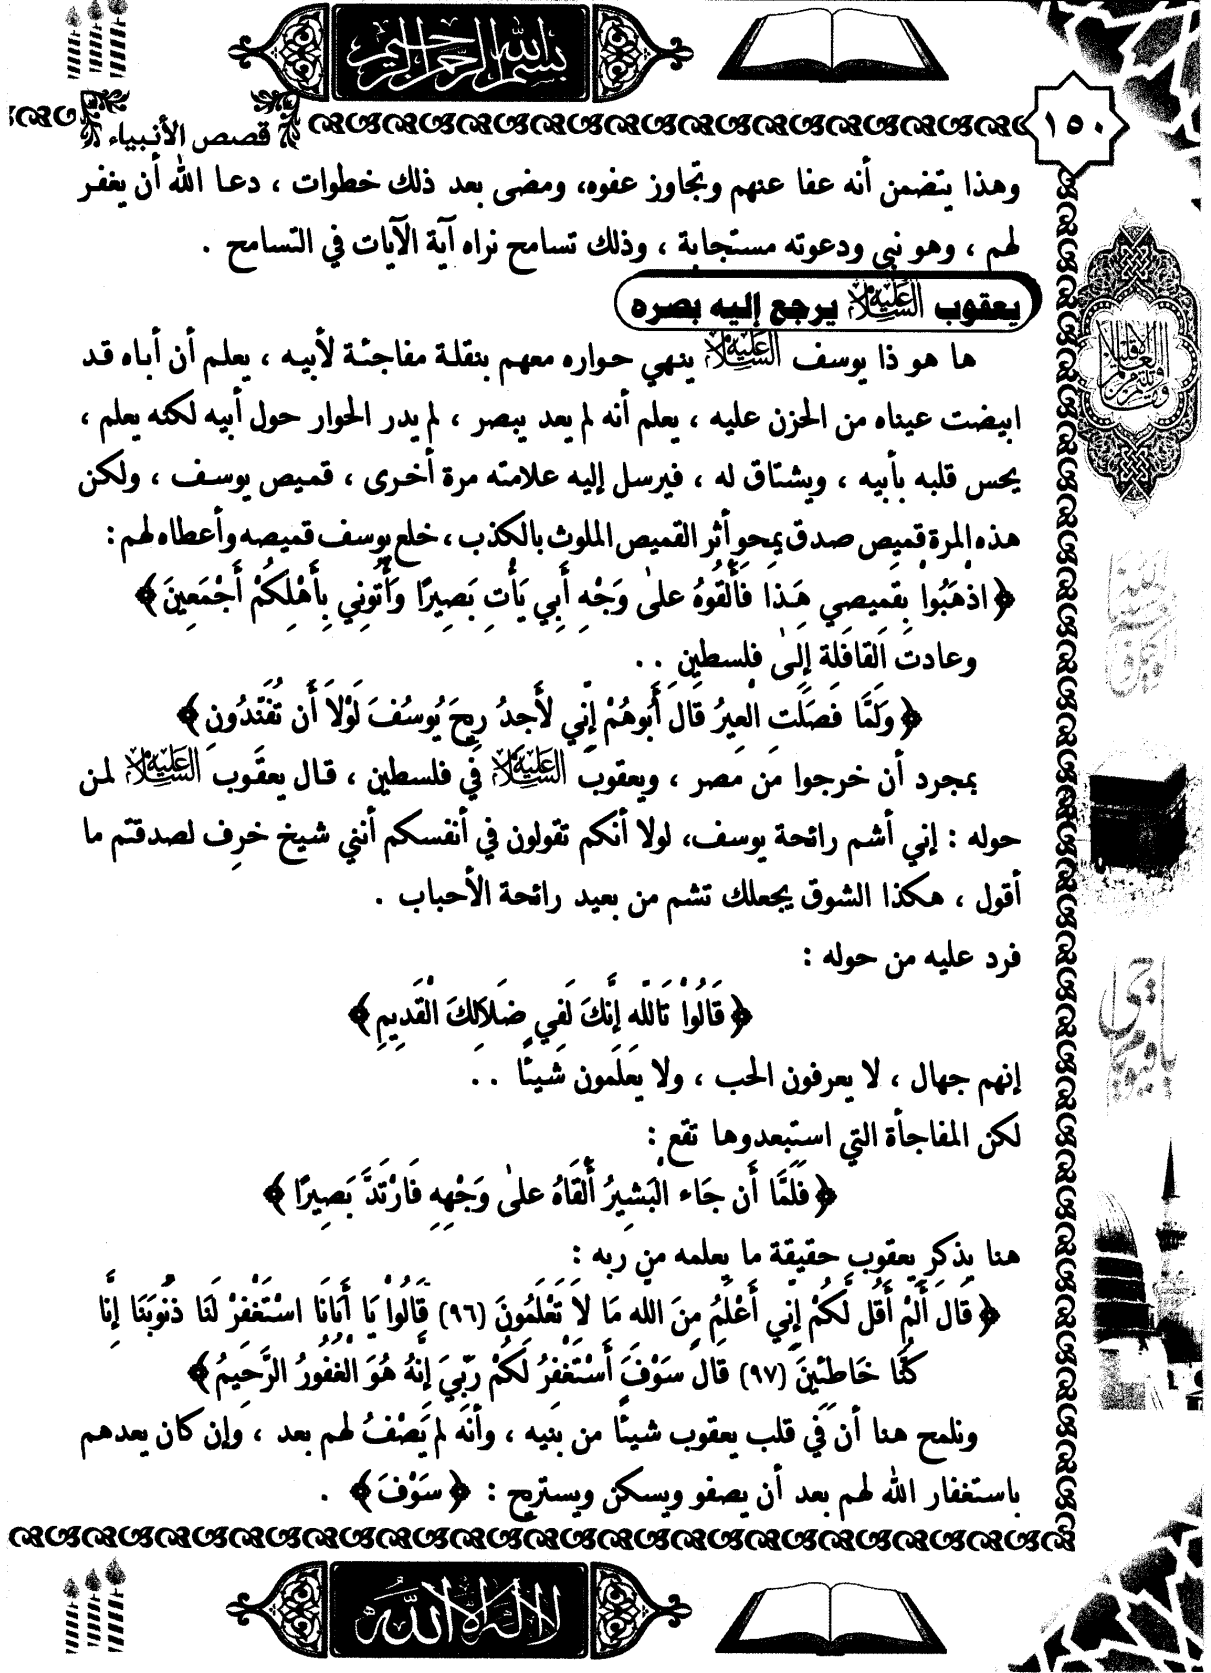 بسم الله الرحمن الرحيم
١٥٠
قصص الأنبياء
وهذا يتضمن أنه عفا عنهم وتجاوز عفوه، ومضى بعد ذلك خطوات ، دعا الله أن يغفر
لهم ، وهو نبي ودعوته مستجابة ، وذلك تسامح نراه آية الآيات في التسامح .
يعقوب عليه السلام يرجع إليه بصره
ها هو ذا يوسف عليه السلام ينهي حواره معهم بنقلة مفاجئة لأبيه ، يعلم أن أباه قد
ابيضت عيناه من الحزن عليه ، يعلم أنه لم يعد يبصر ، لم يدر الحوار حول أبيه لكنه يعلم ،
يحس قلبه بأبيه ، ويشتاق له ، فيرسل إليه علامته مرة أخرى ، قميص يوسف ، ولكن
هذه المرة قميص صدق يمحو أثر القميص الملوث بالكذب ، خلع يوسف قميصه وأعطاه لهم :
﴿ اذْهَبُواْ بِقَمِيصِي هَذَا فَأَلْقُوهُ عَلَى وَجْهِ أَبِي يَأْتِ بَصِيرًا وَأْتُونِي بِأَهْلِكُمْ أَجْمَعِينَ ﴾
وعادت القافلة إلى فلسطين . .
﴿ وَلَمَّا فَصَلَتِ الْعِيرُ قَالَ أَبُوهُمْ إِنِّي لأَجِدُ رِيحَ يُوسُفَ لَوْلاَ أَن تُفَنِّدُونِ ﴾
بمجرد أن خرجوا من مصر ، ويعقوب عليه السلام في فلسطين ، قال يعقوب عليه السلام لمن
حوله : إني أشم رائحة يوسف، لولا أنكم تقولون في أنفسكم أنني شيخ خرِف لصدقتم ما
أقول ، هكذا الشوق يجعلك تشم من بعيد رائحة الأحباب .
فرد عليه من حوله :
﴿ قَالُواْ تَاللّهِ إِنَّكَ لَفِي ضَلاَلِكَ الْقَدِيمِ ﴾
إنهم جهال ، لا يعرفون الحب ، ولا يعلمون شيئًا . .
لكن المفاجأة التي استبعدوها تقع :
﴿ فَلَمَّا أَن جَاء الْبَشِيرُ أَلْقَاهُ عَلَى وَجْهِهِ فَارْتَدَّ بَصِيرًا ﴾
هنا يذكر يعقوب حقيقة ما يعلمه من ربه :
﴿ قَالَ أَلَمْ أَقُل لَّكُمْ إِنِّي أَعْلَمُ مِنَ الله مَا لاَ تَعْلَمُونَ (٩٦) قَالُواْ يَا أَبَانَا اسْتَغْفِرْ لَنَا ذُنُوبَنَا إِنَّا
كُنَّا خَاطِئِينَ (٩٧) قَالَ سَوْفَ أَسْتَغْفِرُ لَكُمْ رَبِّيَ إِنَّهُ هُوَ الْغَفُورُ الرَّحِيمُ ﴾
ونلمح هنا أن في قلب يعقوب شيئًا من بنيه ، وأنه لم يَصْفُ لهم بعد ، وإن كان يعدهم
باستغفار الله لهم بعد أن يصفو ويسكن ويستريح : ﴿ سَوْفَ ﴾ .
لا إله إلا الله